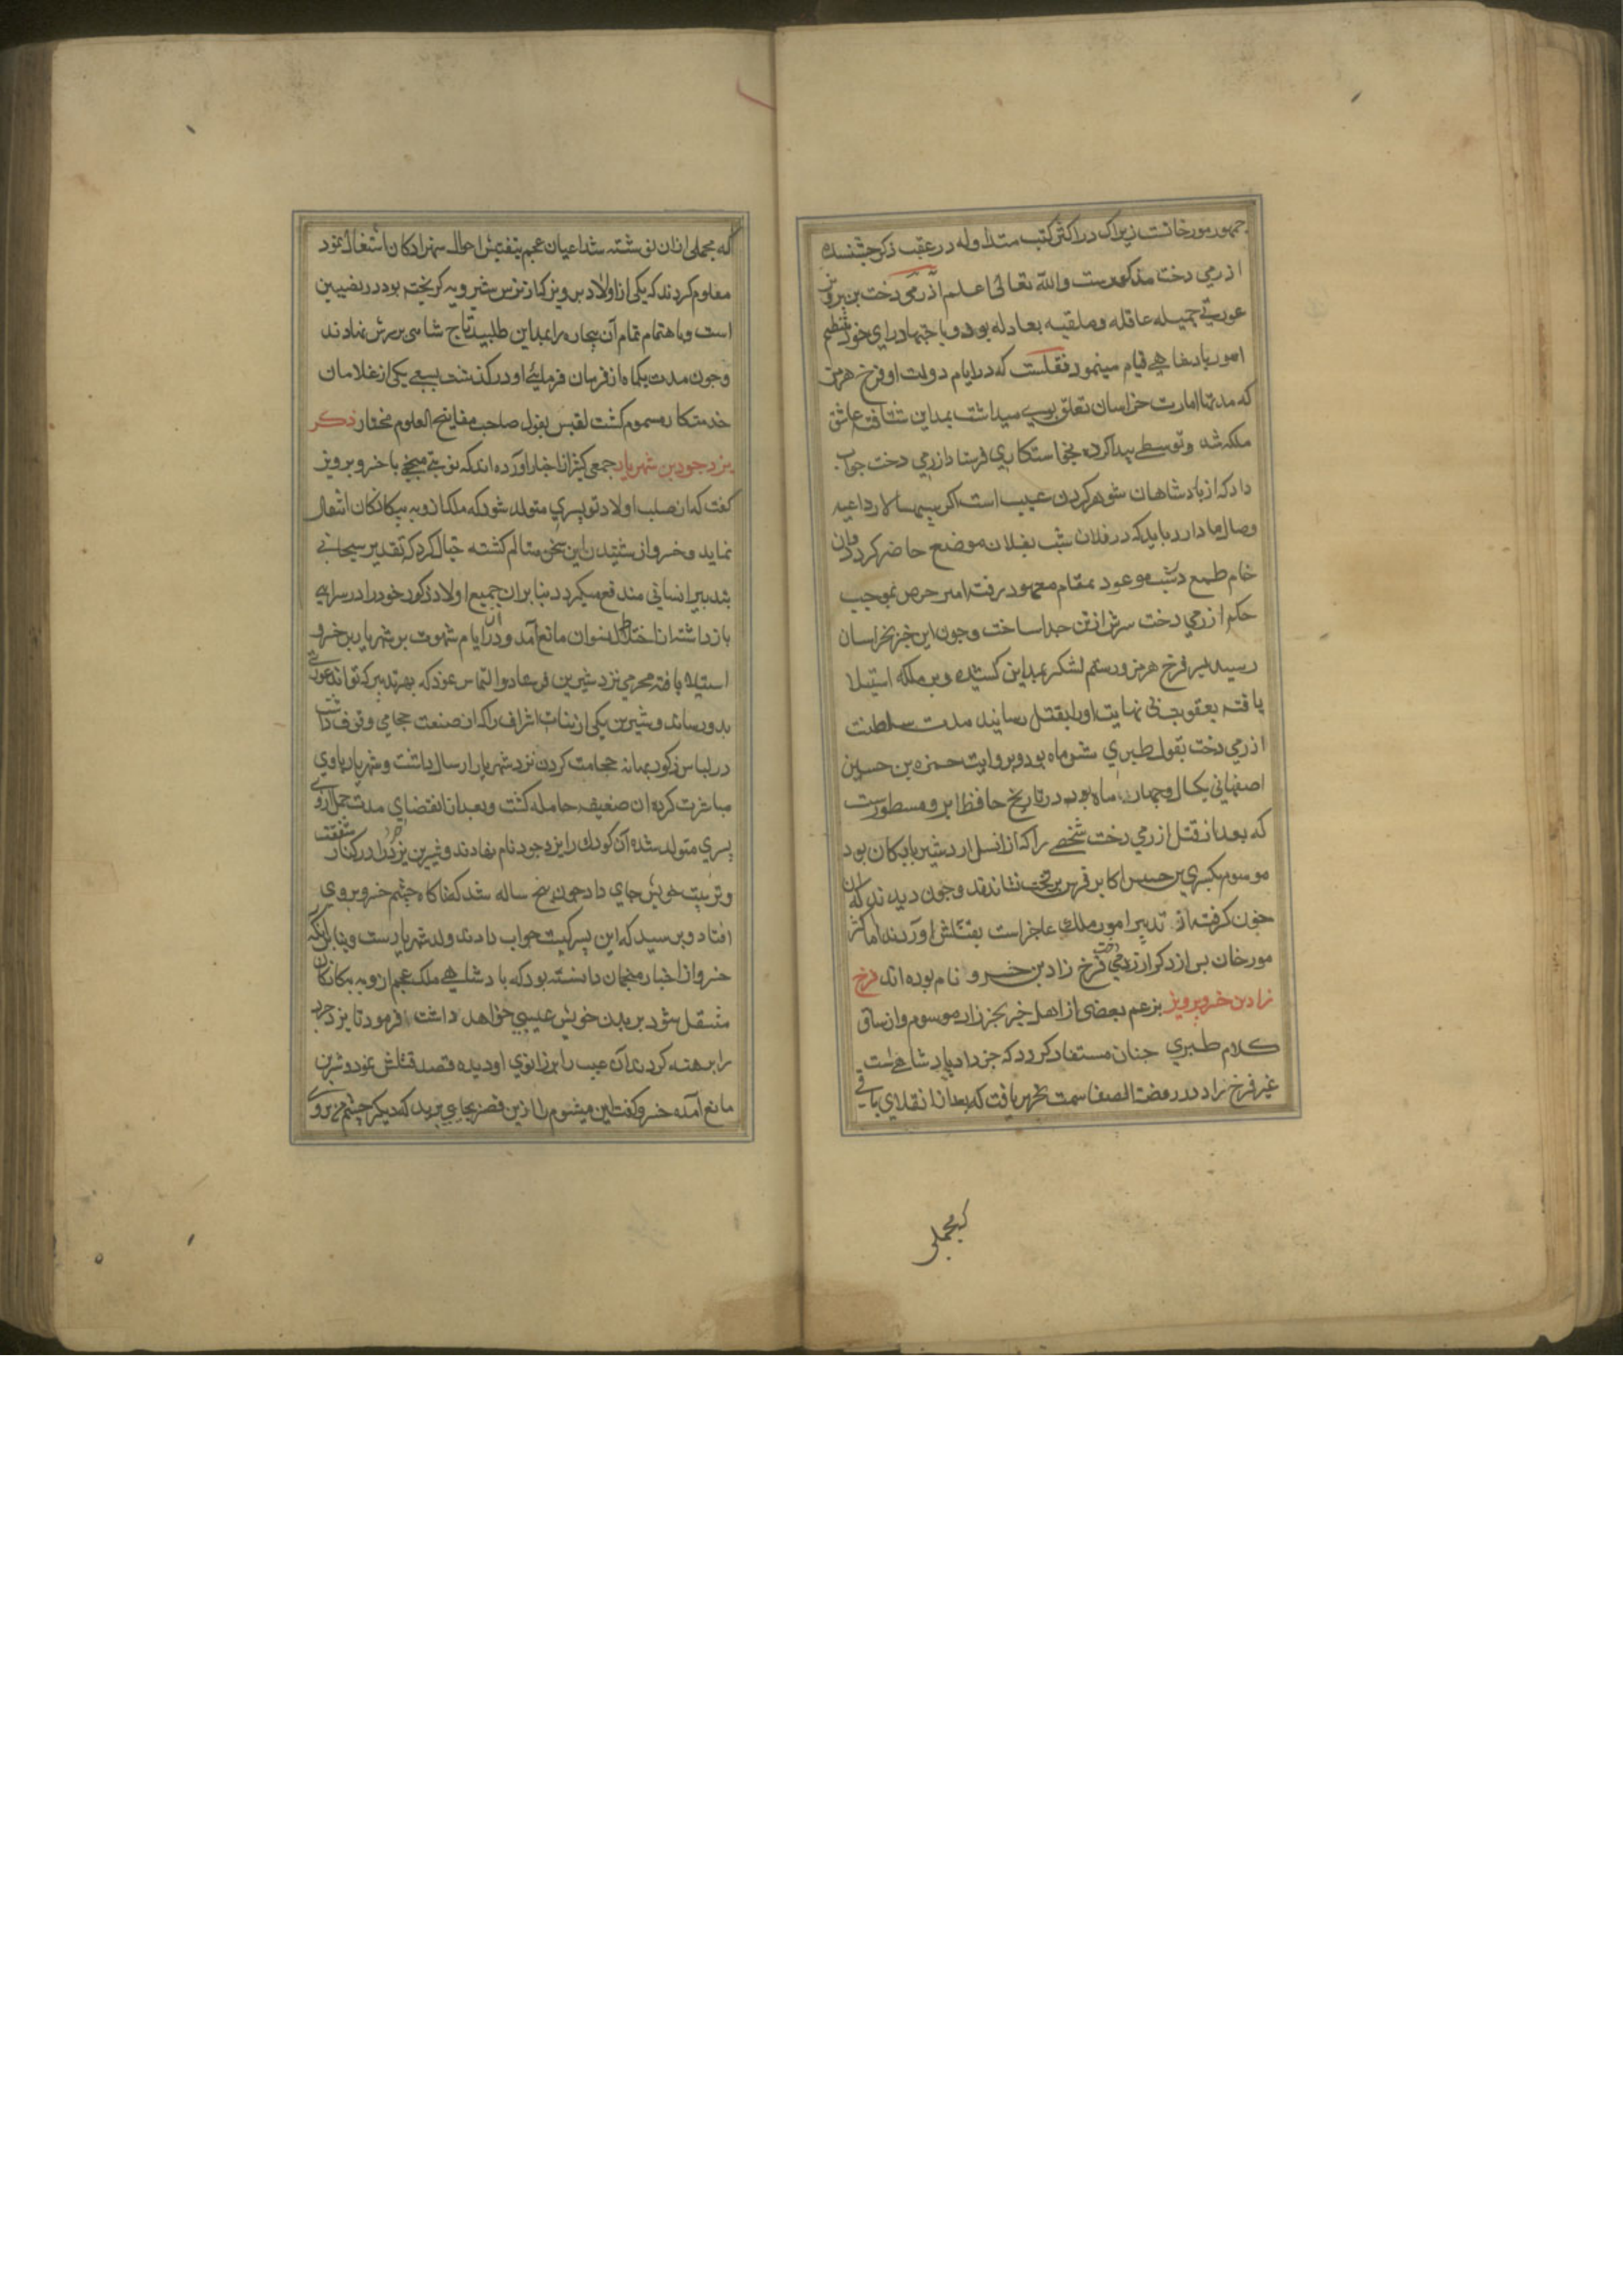 جمهور مورخانست زیراک در اکثر کتب متداوله در عقب ذکر جشنسده
ازرمی دخت مذکورست والله تعالی اعلم آذرمی دخت بن پرویز
عورتی جمیله عاقله و ملقبه بعادله بود و باجتهاد رای خود بتنظیم
امور پادشاهی قیام مینمود نقلست که در ایام دولت او فرخ هرمز
که مدتها امارت خراسان تعلق بوی میداشت بمداین شتافته عاشق
ملکه شد و توسطی پیدا کرده بخواستکاری فرستاد ازرمی دخت جواب
داد که از پادشاهان شوهر کردن عیب است اگر سپهسالار داعیه
وصال ما دارد باید که در فلان شب بفلانه موضع حاضر کردد و آن
خام طمع در شب موعود بمقام معهود رفته امیر حرص بموجب
حکم ازرمی دخت سرش از تن جدا ساخت و چون این خبر بخراسان
رسید پسر فرخ هرمز رستم لشکر بمداین کشیده و بر ملکه استیلا
یافته بعقوبت بی نهایت اورا بقتل رسانید مدت سلطنت
ازرمی دخت بقول طبری شش ماه بود و بروایت حمزه بن حسین
اصفهانی یکسال و چهار ماه بود در تاریخ حافظ ابرو مسطورست
که بعد از قتل ازرمی دخت شخصی را که از نسل اردشیر بابکان بود
موسوم بکسری بن اکابر فرس بر تخت نشاندند و چون دیدند که آن
خون کرفته از تدبیر امور ملک عاجز است بقتلش آوردند اما اکثر
مورخان پس از ذکر ازرمی دخت فرخ زاد بن خسرو نام بوده اند فرخ
زاد بن خسرو پرویز بزعم بعضی از اهل خبر بجززاد موسوم و از سیاق
کلام طبری چنان مستفاد کردد که جززاد پادشاهی است
غیر فرخ زاد در روضة الصفا سمت تحریر یافت که بعد از انقلابی
که مجملی
که مجملی ازان نوشته شد اعیان عجم بتفتیش احوال شهزادکان اشتغال نمود
معلوم کردند که یکی از اولاد پرویز که از ترس شیرویه کریخته بود در نصیبین
است و باهتمام تمام آن بیچاره را بمداین طلبید تاج شاهی بر سرش نهادند
و چون مدت یکماه از فرمان فرمایی او درکذشت بسعی یکی از غلامان
خدمتکار مسموم کشت لقبش بقول صاحب مفاتیح العلوم مختار ذکر
یزدجرد بن شهریار جمعی کثیر از اخبار آورده اند که نوبتی منجمی با خسرو پرویز
کفت که از صلب اولاد تو پسری متولد شود که ملک از وبه بیکانکان انتقال
نماید و خسرو از شنیدن این سخن متالم کشته خیال کرد که تقدیر سبحانی
بتدبیر انسانی مندفع میکردد بنابران جمیع اولاد ذکور خود را در سرایی
باز داشته از اختلاط نسوان مانع آمد و دران ایام شهوت بر شهریار بن خسرو
استیلا یافته محرمی نزد شیرین فرستاد و التماس نمود که بهر تدبیر که تواند عورتی
بدو رساند و شیرین یکی از بنات اشراف را که از صنعت حجامی وقوف داشت
در لباس ذکور ببهانه حجامت کردن نزد شهریار ارسال داشت و شهریار باوی
مباشرت کرده آن ضعیفه حامله کشت و بعد از انقضای مدت حمل ازوی
پسری متولد شده آن کودک را یزدجود نام نهادند و شیرین یزدجرد را در کنار شفقت
و تربیت خویش جای داد چون پنج ساله شد کفا کاه چشم خسرو بروی
افتاد و پرسید که این پسر کیست جواب دادند ولد شهریارست و بنابر آنکه
خسرو از اخبار منجمان دانسته بود که پادشاهی ملک عجم ازو به بیکانکان
منتقل شود بر بدن خویش عیبی خواهد داشت فرمود تا یزدجرد
را برهنه کردند آن عیب را بر زانوی او دیده قصد قتلش نمود و شیرین
مانع آمده خسرو کفت این میشوم را ازین قصر بجای برید که دیکر چشم من بروی